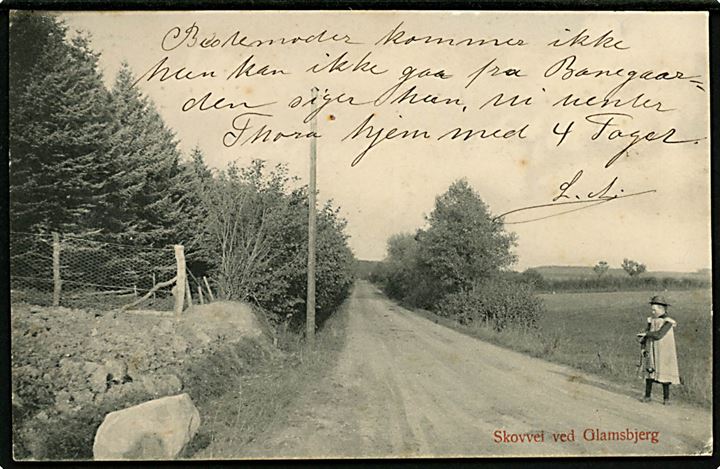 Bestemoder kommer ikke
hun kan ikke gaa fra Banegaar=
den siger hun, vi venter
Thora hjem med 4 Toget.
L. A.
Skovvei ved Glamsbjerg